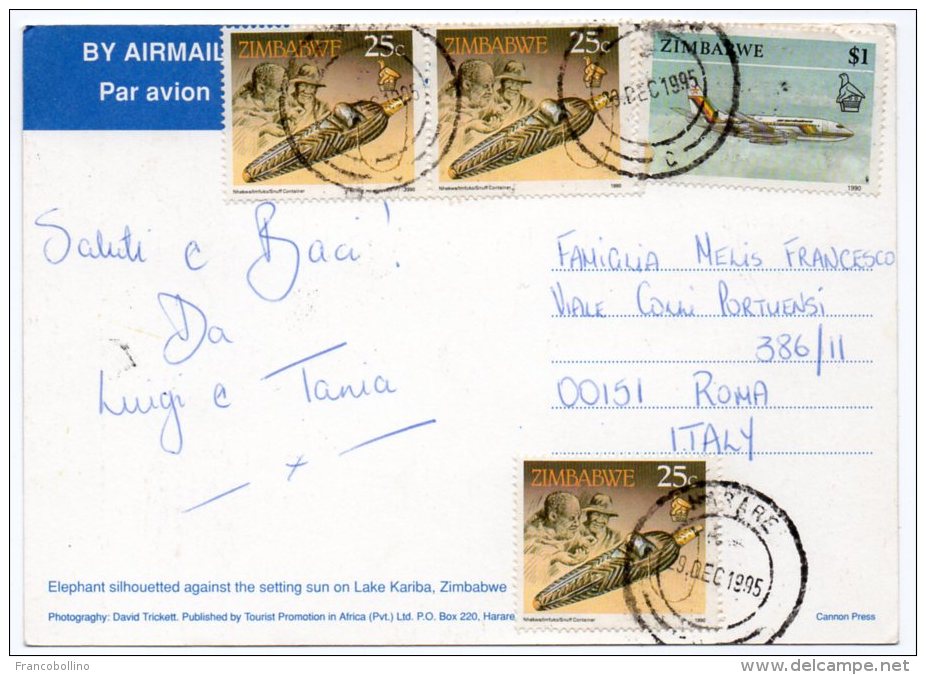 BY AIRMAIL
Par avion
ZIMBABWE 25c
Nhekwe/Imfuko/Snuff Container 1990
ZIMBABWE 25c
Nhekwe/Imfuko/Snuff Container 1990
ZIMBABWE $1
1990
29.DEC 1995
C
Saluti e Baci!
Da
Luigi e Tania
FAMIGLIA MELIS FRANCESCO
VIALE COLLI PORTUENSI
386/11
00151 ROMA
ITALY
ZIMBABWE 25c
Nhekwe/Imfuko/Snuff Container 1990
HARARE
29.DEC 1995
Elephant silhouetted against the setting sun on Lake Kariba, Zimbabwe
Photograghy: David Trickett. Published by Tourist Promotion in Africa (Pvt.) Ltd. P.O. Box 220, Harare
Cannon Press
Francobollino
delcampe.net